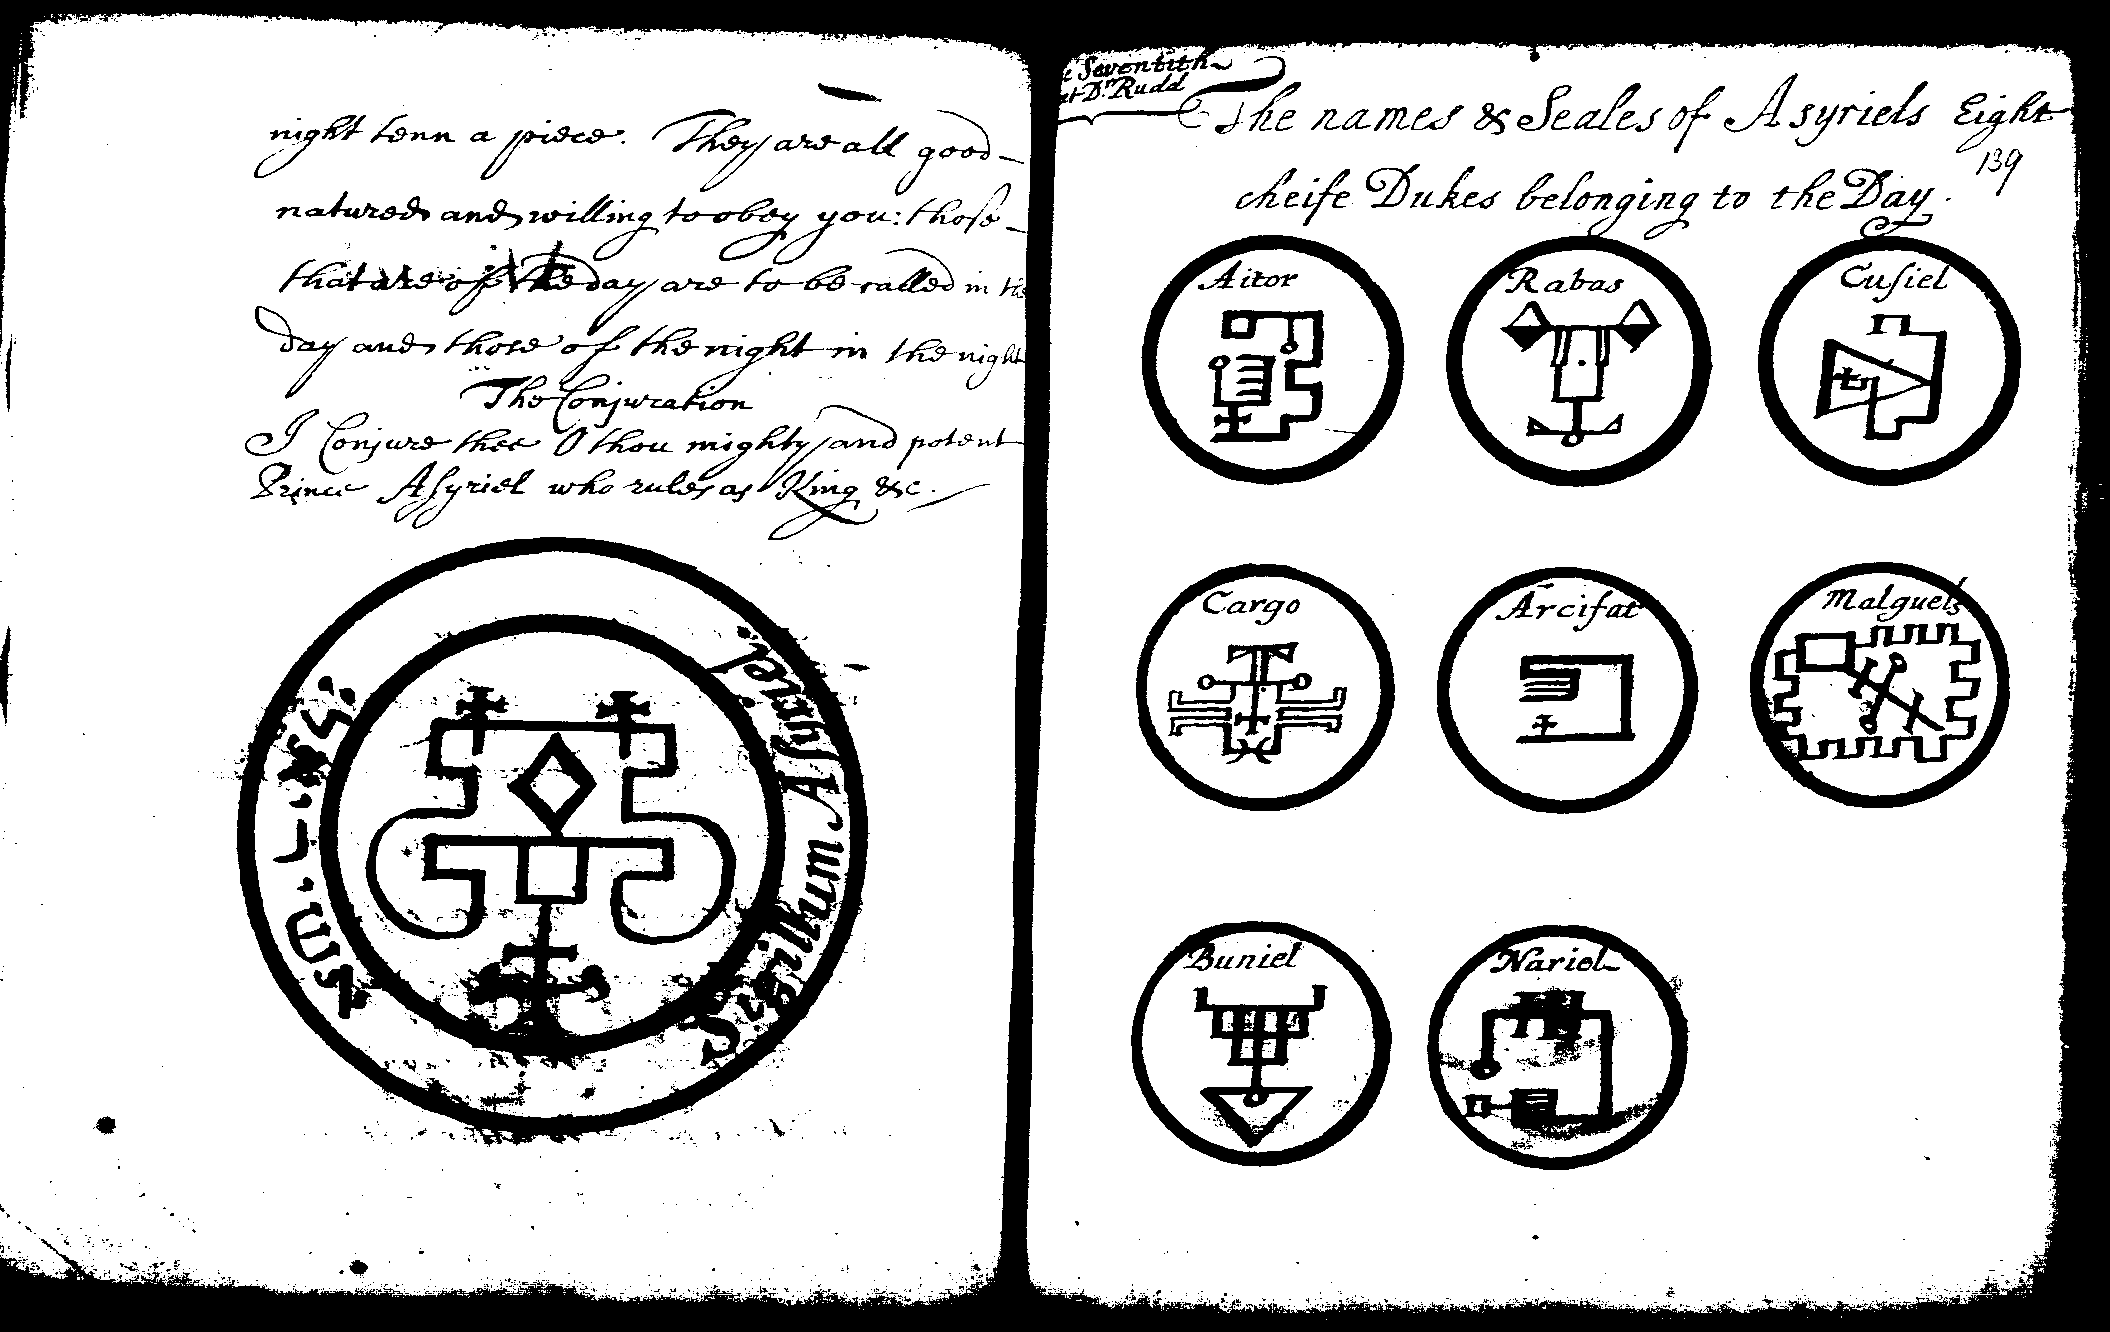 night tenn a piece. They are all good
natured and willing to obey you: those
that are of the day are to be called in the
day and those of the night in the night
The Conjuration
I Conjure thee O thou mighty and potent
Prince Asyriel who rules as King &c.
Sigillum Asyriel
Seventith
Dr Rudd
The names & Seales of Asyriels Eight
139
cheife Dukes belonging to the Day.
Aitor
Rabas
Cusiel
Cargo
Arcisat
Malguels
Buniel
Nariel